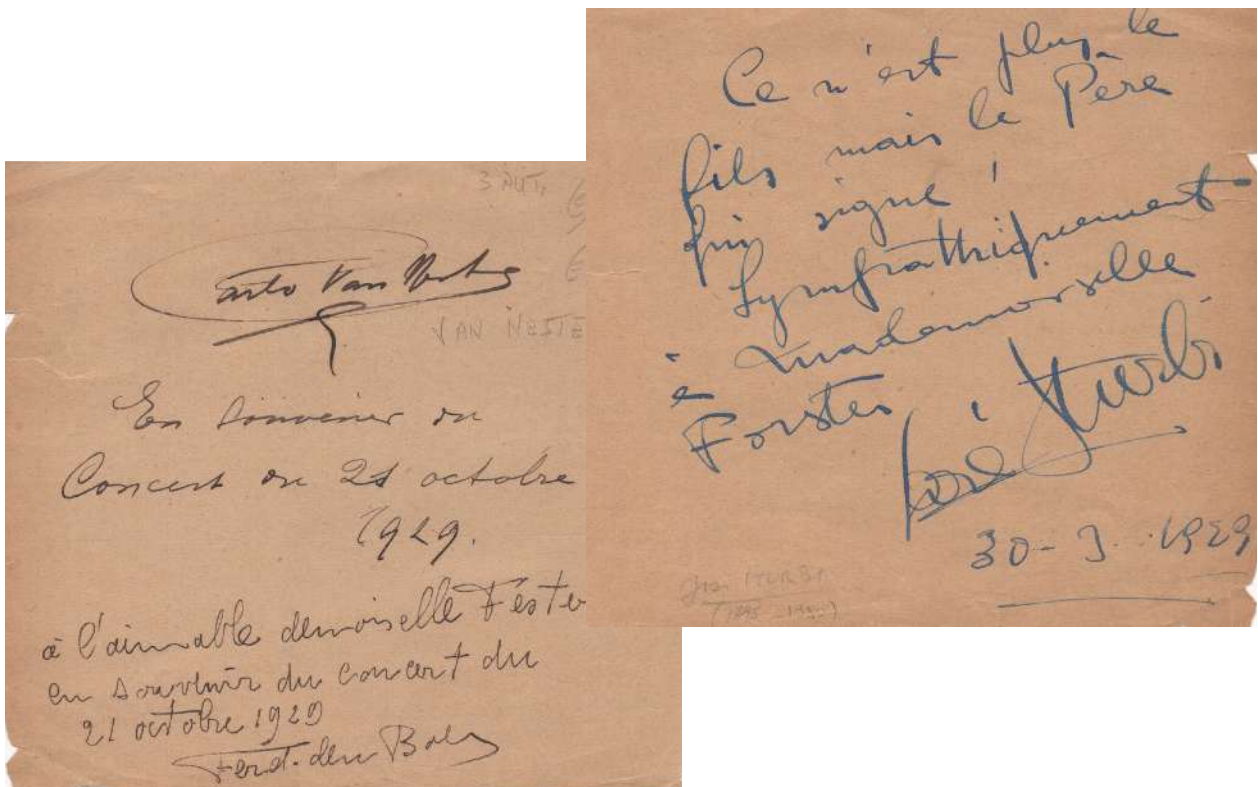 3 AUT.
Carlo Van Neste
VAN NESTE
En souvenir du
Concert du 21 octobre
1929.
à l'aimable demoiselle Fester
en souvenir du concert du
21 octobre 1929
Ferd. den
Ce n'est plus le
fils mais le Père
qui signe !
Sympathiquement
à Mademoiselle
Forster
José Iturbi
30-3-1929
José ITURBI
(1895